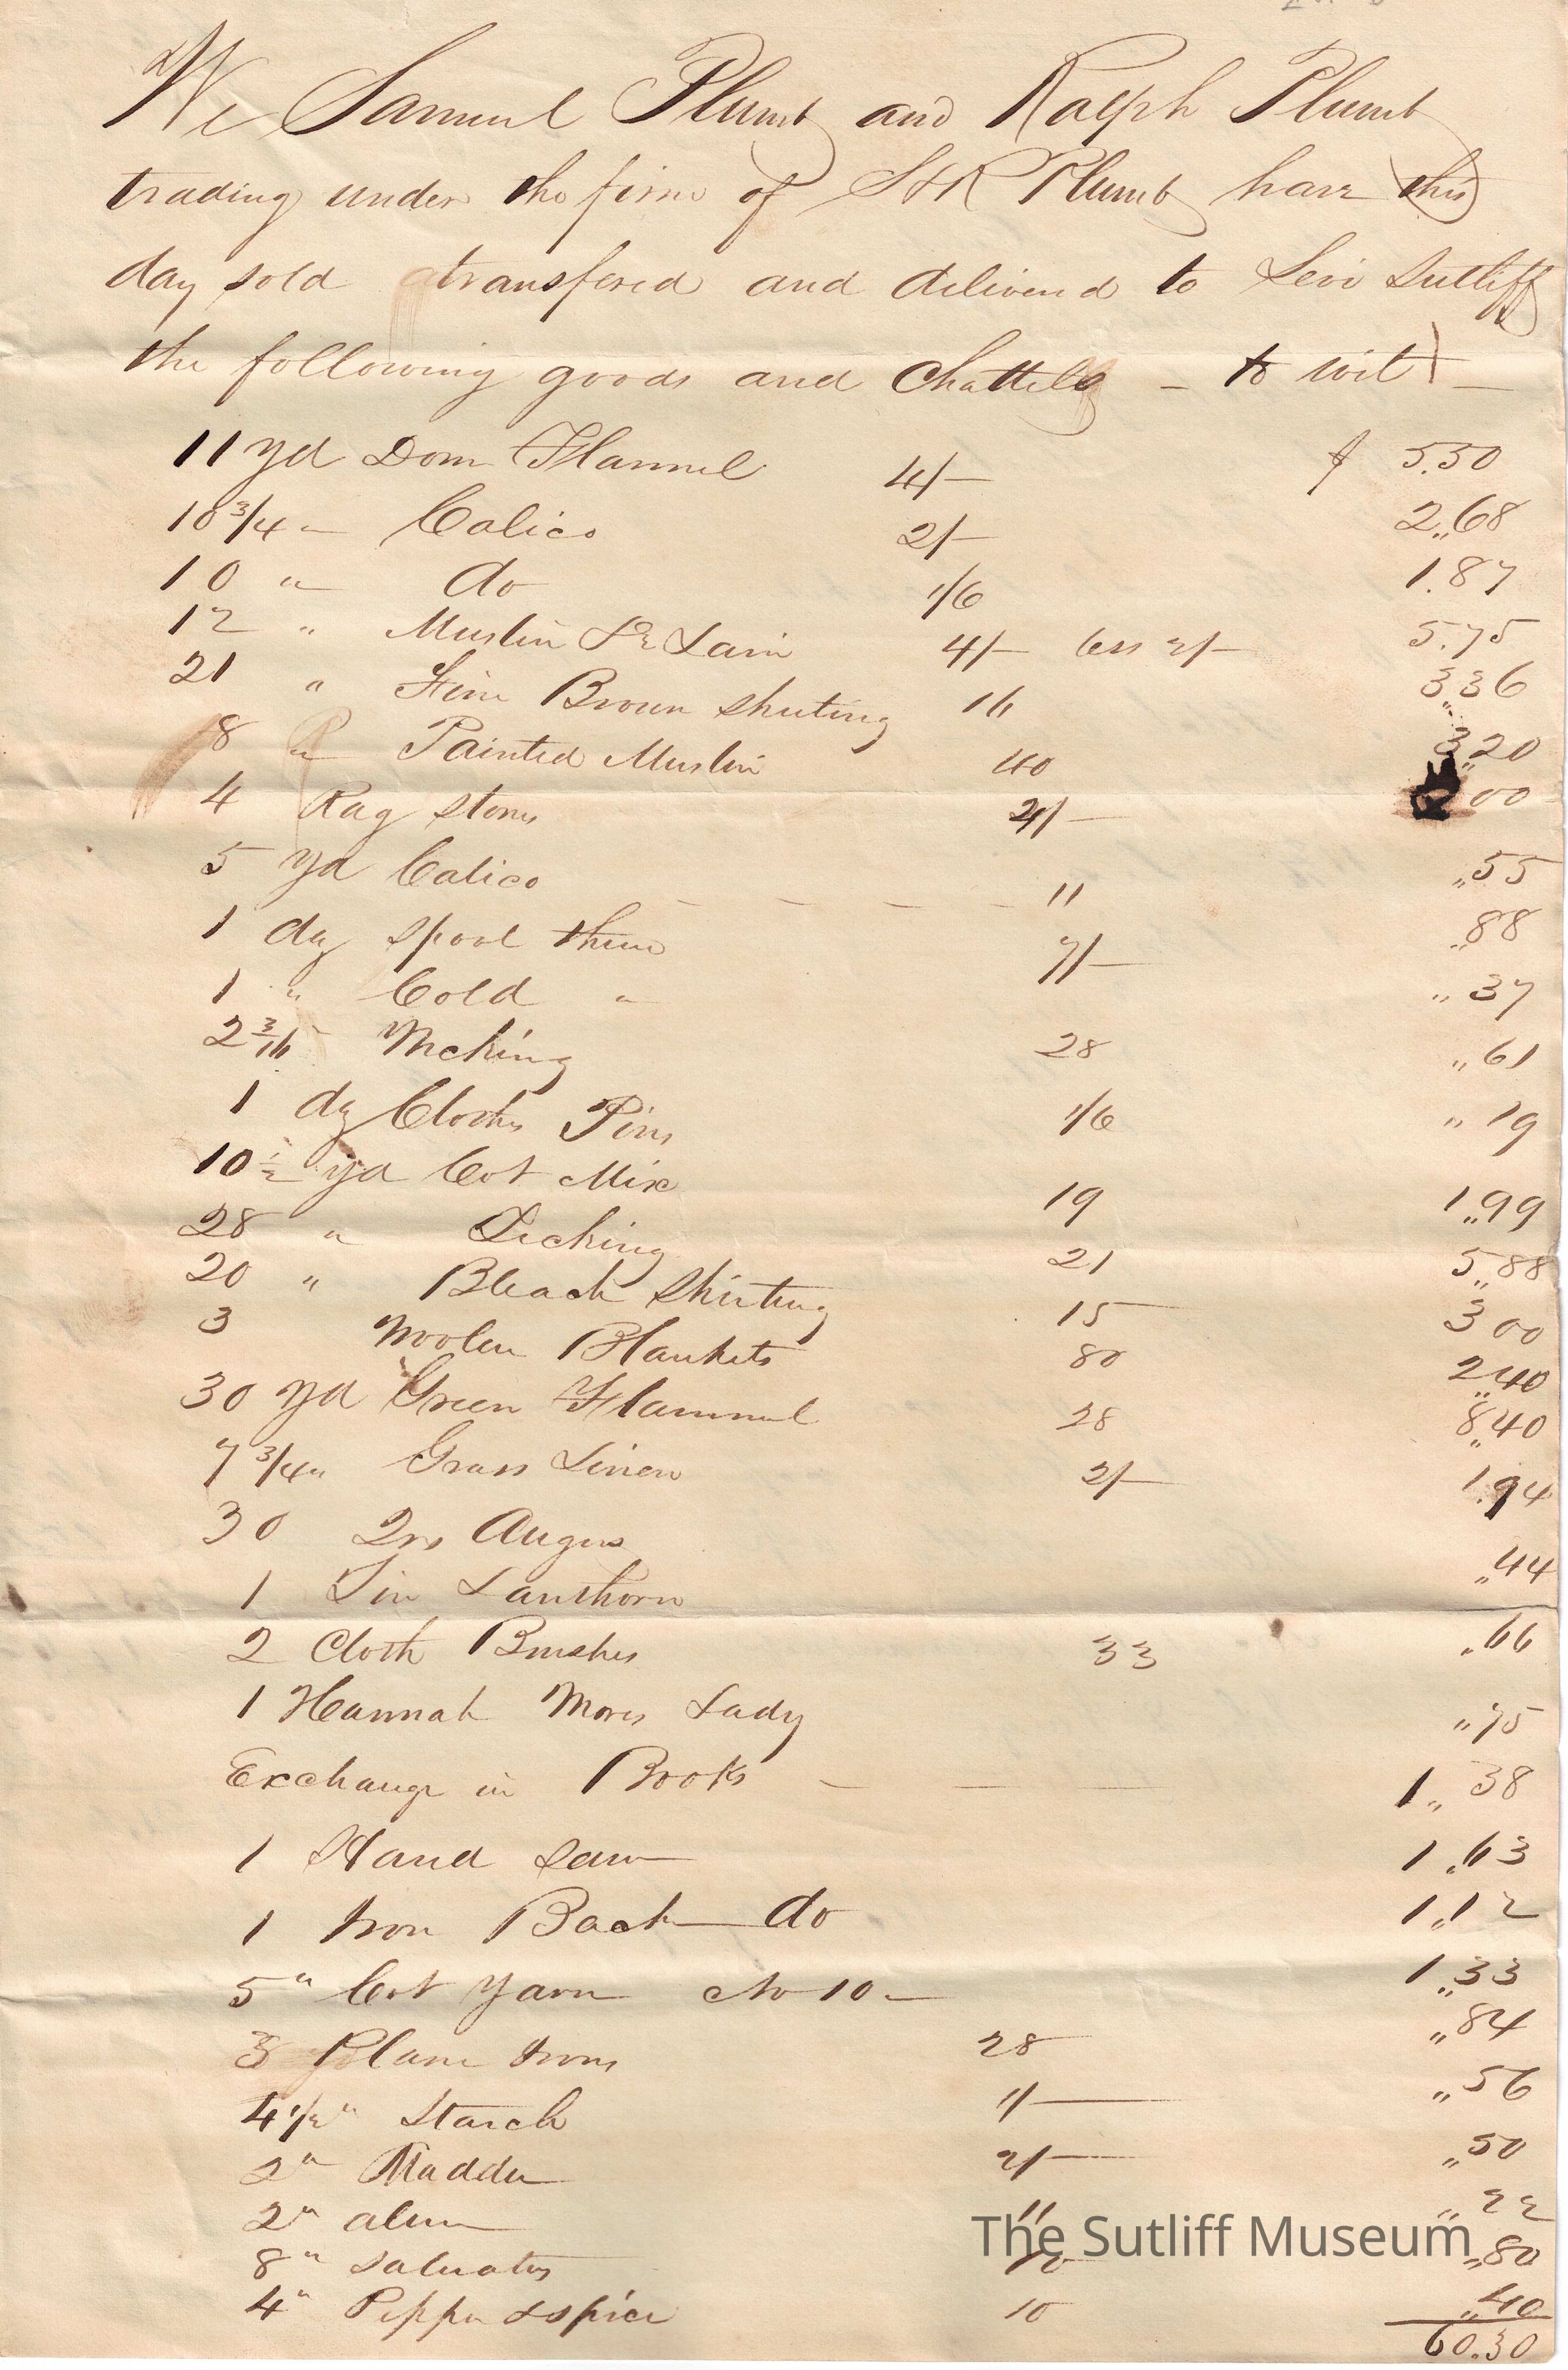 We Samuel Plumb and Ralph Plumb
trading under the firm of S & R Plumb have this
day sold transfered and delivered to Levi Sutliff
the following goods and Chattells – to wit –
11 yd Dom Flannel 4/– $ 5.50
10 3/4 " Calico 2/– 2,,68
10 " do 1/6 1.87
12 " Muslin De Lain 4/– less 2/– 5.75
21 " Fine Brown Shirting 16 3,,36
8 " Painted Muslin 40 3,,20
4 Rag stones 00
5 yd Calico – – – – 11 ,,55
1 dz spool thred 7/– ,,88
1 " Cold " ,,37
2 3/16 " 28 ,,61
1 dz Cloths Pins 1/6 ,,19
10 1/2 yd Cot Mix 19 1,,99
28 " Ticking 21 5,,88
20 " Bleach Shirting 15 3 00
3 Woolen Blankets 80 2,,40
30 yd Green Flannel 28 8,,40
7 3/4 " Grass Linen 2/– 1.94
30 Qrs Augers
1 Tin Lanthorn ,,44
2 Cloth Brushes 33 ,,66
1 Hannah Mores Lady ,,75
Exchange in Books – – 1,,38
1 Hand Saw 1,,63
1 Iron Back do 1,,12
5 " Cot Yarn No 10 – 1,,33
3 Plane Irons 28 ,,84
4 1/2 " Starch 1/– ,,56
2 " Madder 2/– ,,50
2 " alum 11 ,,22
8 " Saleratus 10 ,,80
4 " Pepper & spice 10 ,,40
60.30
The Sutliff Museum